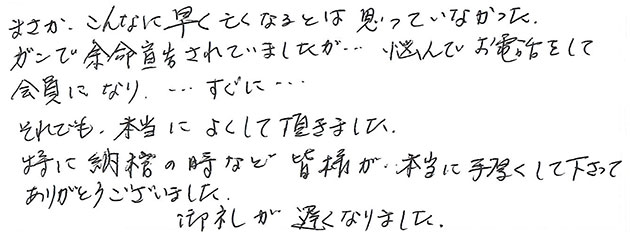 まさか、こんなに早く亡くなるとは思っていなかった。
ガンで余命宣告されていましたが… 悩んでお電話をして
会員になり、…すぐに…
それでも、本当によくして頂きました。
特に納棺の時など皆様が、本当に手厚くして下さって
ありがとうございました。
御礼が遅くなりました。